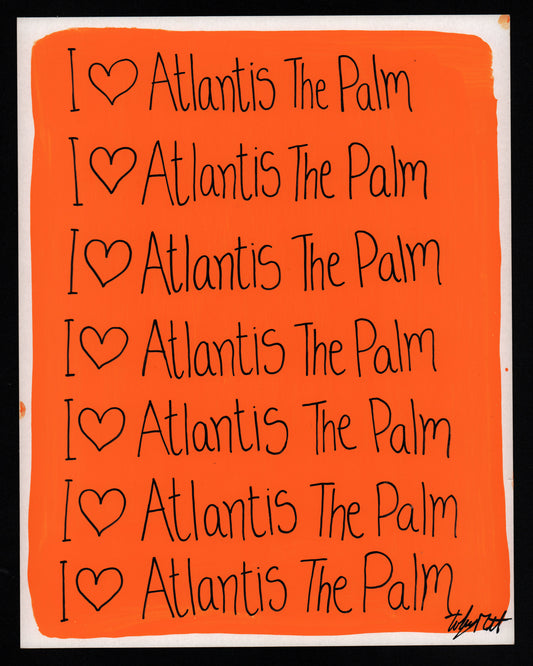 I ♡ Atlantis The Palm
I ♡ Atlantis The Palm
I ♡ Atlantis The Palm
I ♡ Atlantis The Palm
I ♡ Atlantis The Palm
I ♡ Atlantis The Palm
I ♡ Atlantis The Palm